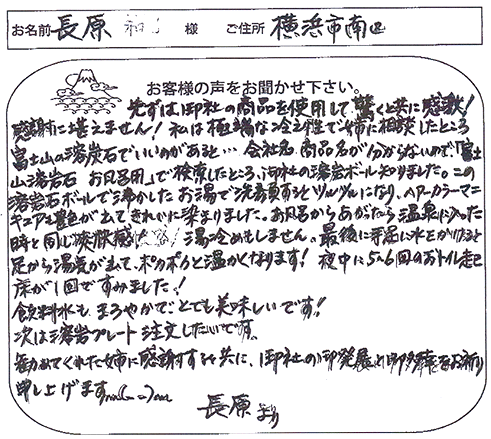 お名前 長原 様 ご住所 横浜市南区
お客様の声をお聞かせ下さい。
先ずは、御社の商品を使用して驚くと共に感激!
感謝に堪えません! 私は極端な冷え性で姉に相談したところ
富士山の溶岩石でいいのがあると… 会社名、商品名が分からないので、「富士
山溶岩石 お風呂用」で検索したところ、御社の溶岩ボール知りました。この
溶岩石ボールで沸かしたお湯で洗髪するとツルツルになり、ヘアーカラーマニ
キュアも艶が出てきれいに染まりました。お風呂からあがたら温泉に入った
時と同じ爽快感 湯冷めもしません。最後に寺尾に水をかけると
足から湯気が出て、ポカポカと温かくなります! 夜中に5〜6回のおトイレ起
床が1回ですみました!
飲料水も、まろやかでとても美味しいです!
次は溶岩プレート注文したいです。
勧めてくれた姉に感謝すると共に、御社の御発展と御多幸をお祈り
申し上げますm(_ _)m
長原